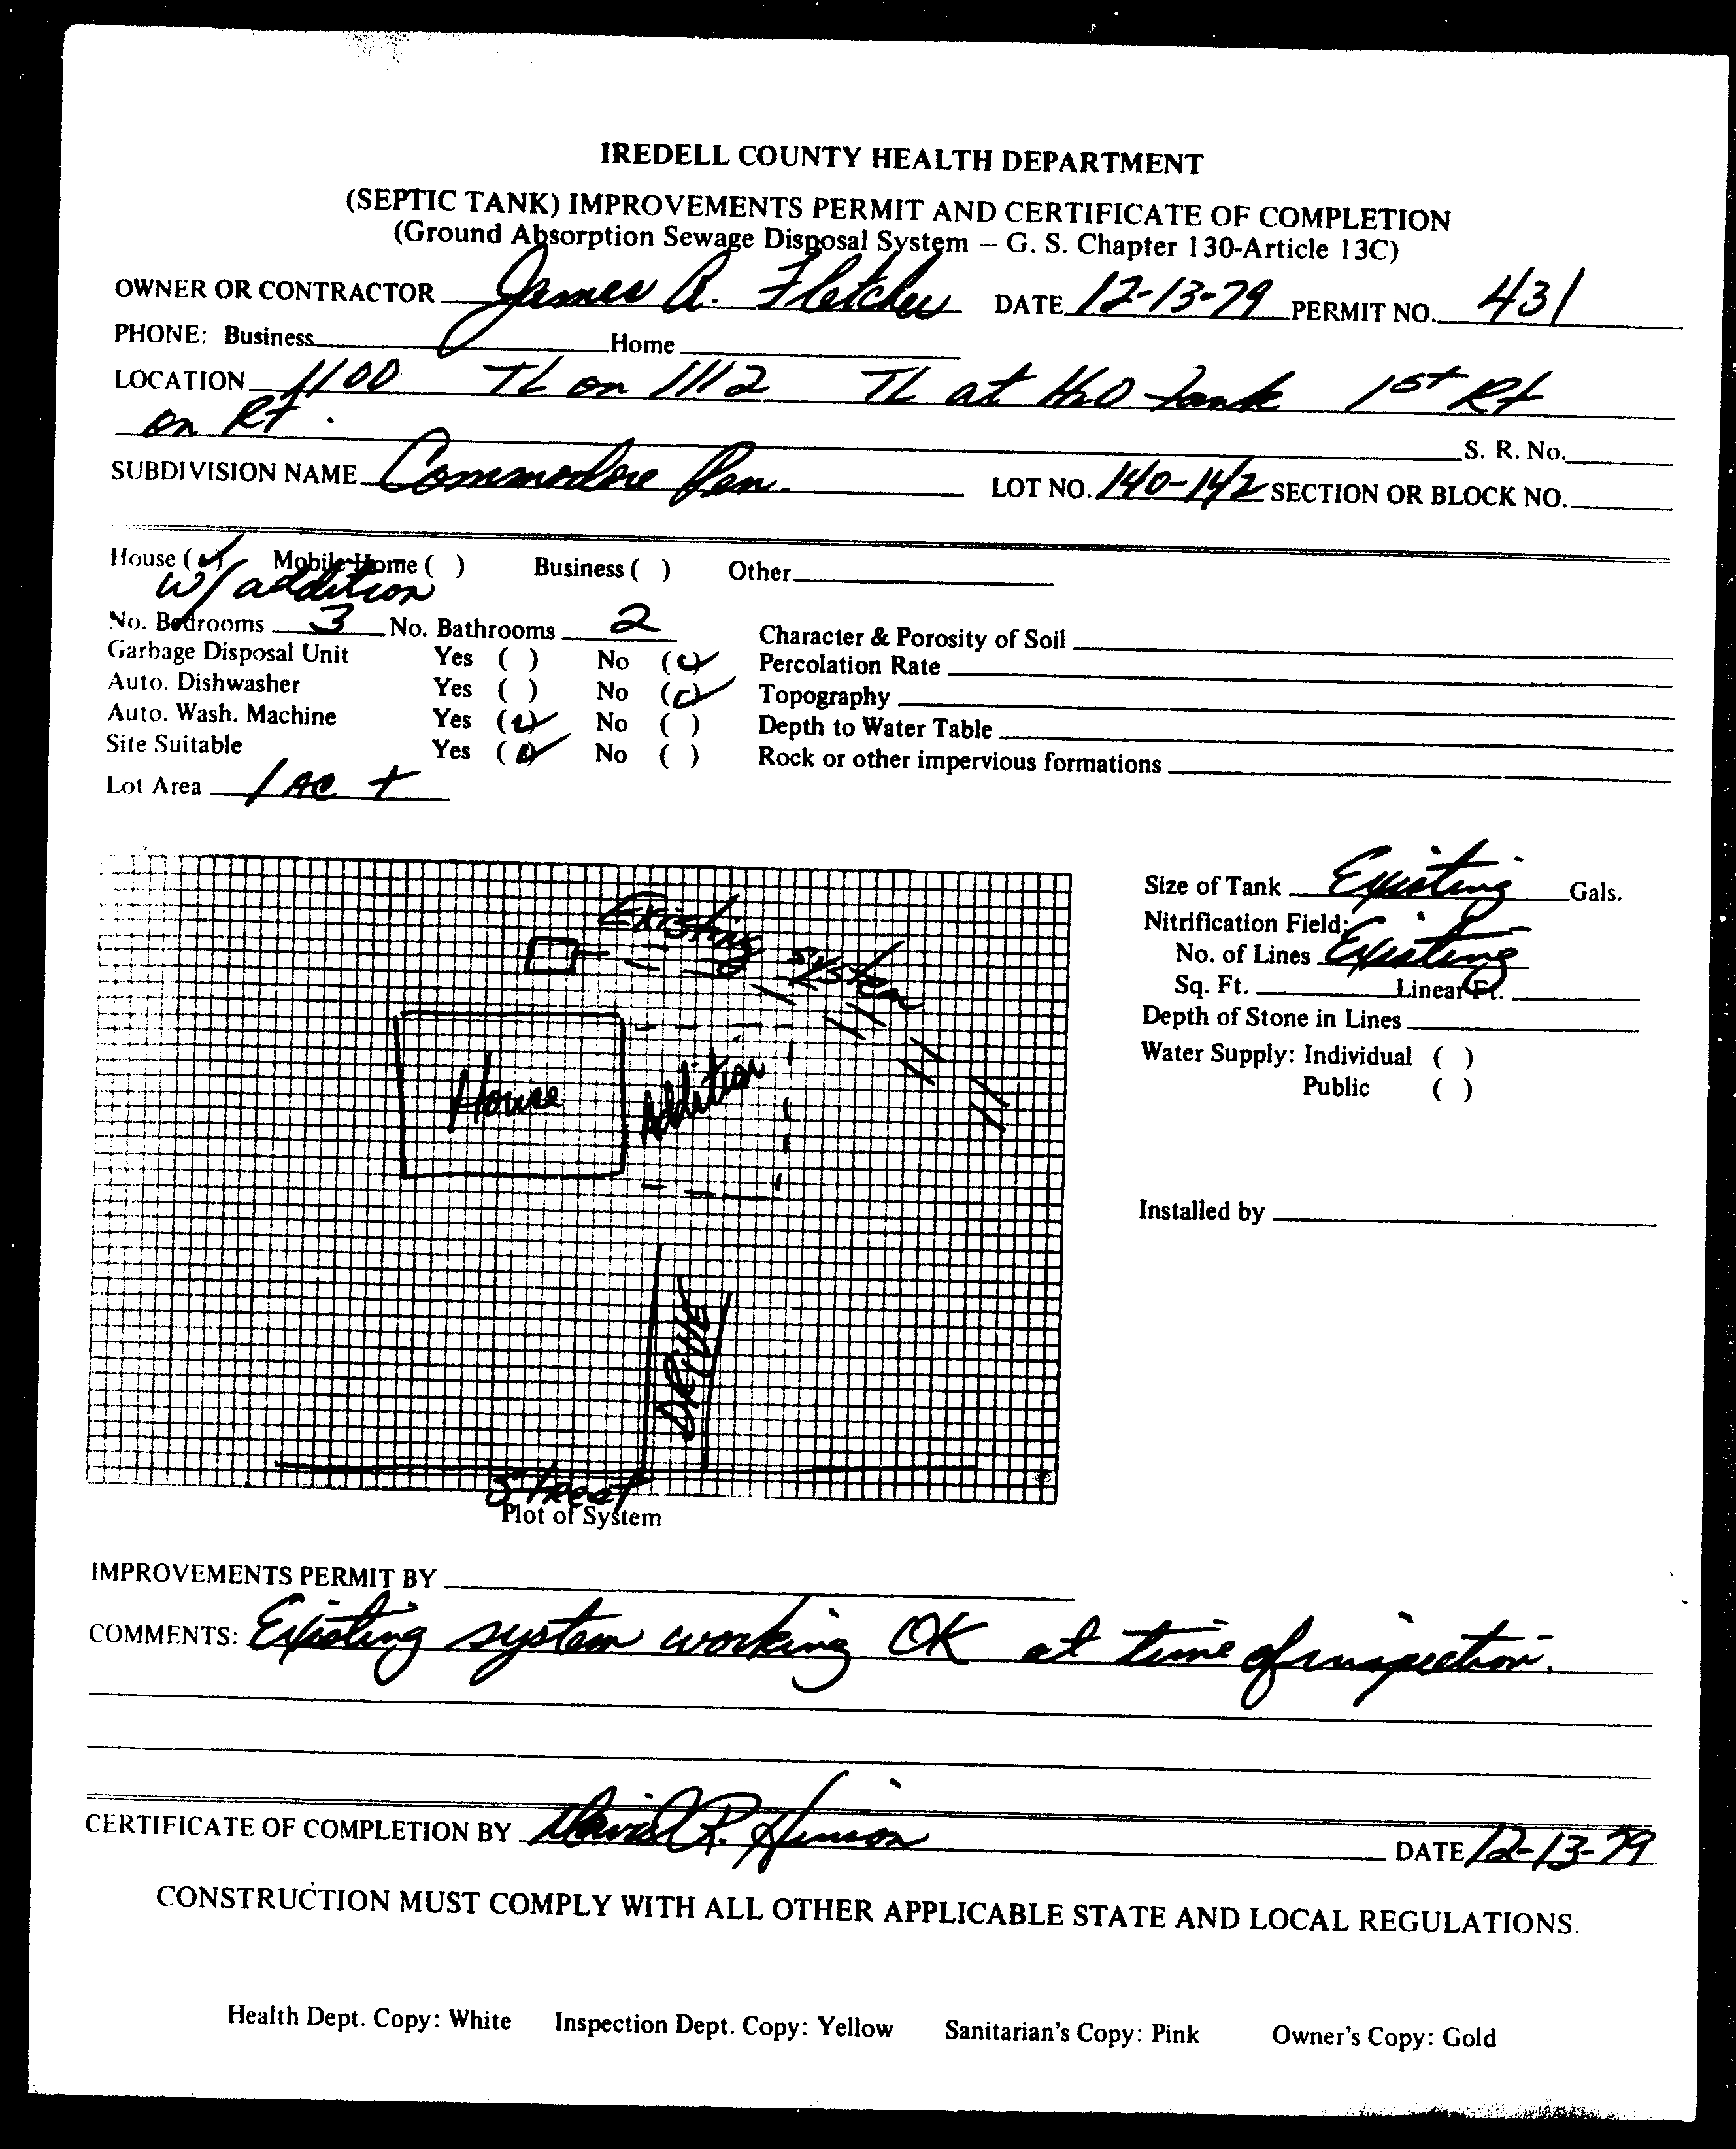 IREDELL COUNTY HEALTH DEPARTMENT
(SEPTIC TANK) IMPROVEMENTS PERMIT AND CERTIFICATE OF COMPLETION
(Ground Absorption Sewage Disposal System – G. S. Chapter 130-Article 13C)
OWNER OR CONTRACTOR James A. Fletcher DATE 12-13-79 PERMIT NO. 431
PHONE: Business Home
LOCATION 1100 TL on 1112 TL at H2O tank 1st Rt
on Rt.
S. R. No.
SUBDIVISION NAME Commodore Pen. LOT NO. 140-142 SECTION OR BLOCK NO.
House (✓) Mobile Home ( ) Business ( ) Other
w/ addition
No. Bedrooms 3 No. Bathrooms 2 Character & Porosity of Soil
Garbage Disposal Unit Yes ( ) No (✓) Percolation Rate
Auto. Dishwasher Yes ( ) No (✓) Topography
Auto. Wash. Machine Yes (✓) No ( ) Depth to Water Table
Site Suitable Yes (✓) No ( ) Rock or other impervious formations
Lot Area 1 AC +
Existing System
House
Addition
DRIVE
Street
Plot of System
Size of Tank Existing Gals.
Nitrification Field:
No. of Lines Existing
Sq. Ft. Linear Ft.
Depth of Stone in Lines
Water Supply: Individual ( )
Public ( )
Installed by
IMPROVEMENTS PERMIT BY
COMMENTS: Existing system working OK at time of inspection.
CERTIFICATE OF COMPLETION BY David R. Hinson DATE 12-13-79
CONSTRUCTION MUST COMPLY WITH ALL OTHER APPLICABLE STATE AND LOCAL REGULATIONS.
Health Dept. Copy: White Inspection Dept. Copy: Yellow Sanitarian's Copy: Pink Owner's Copy: Gold